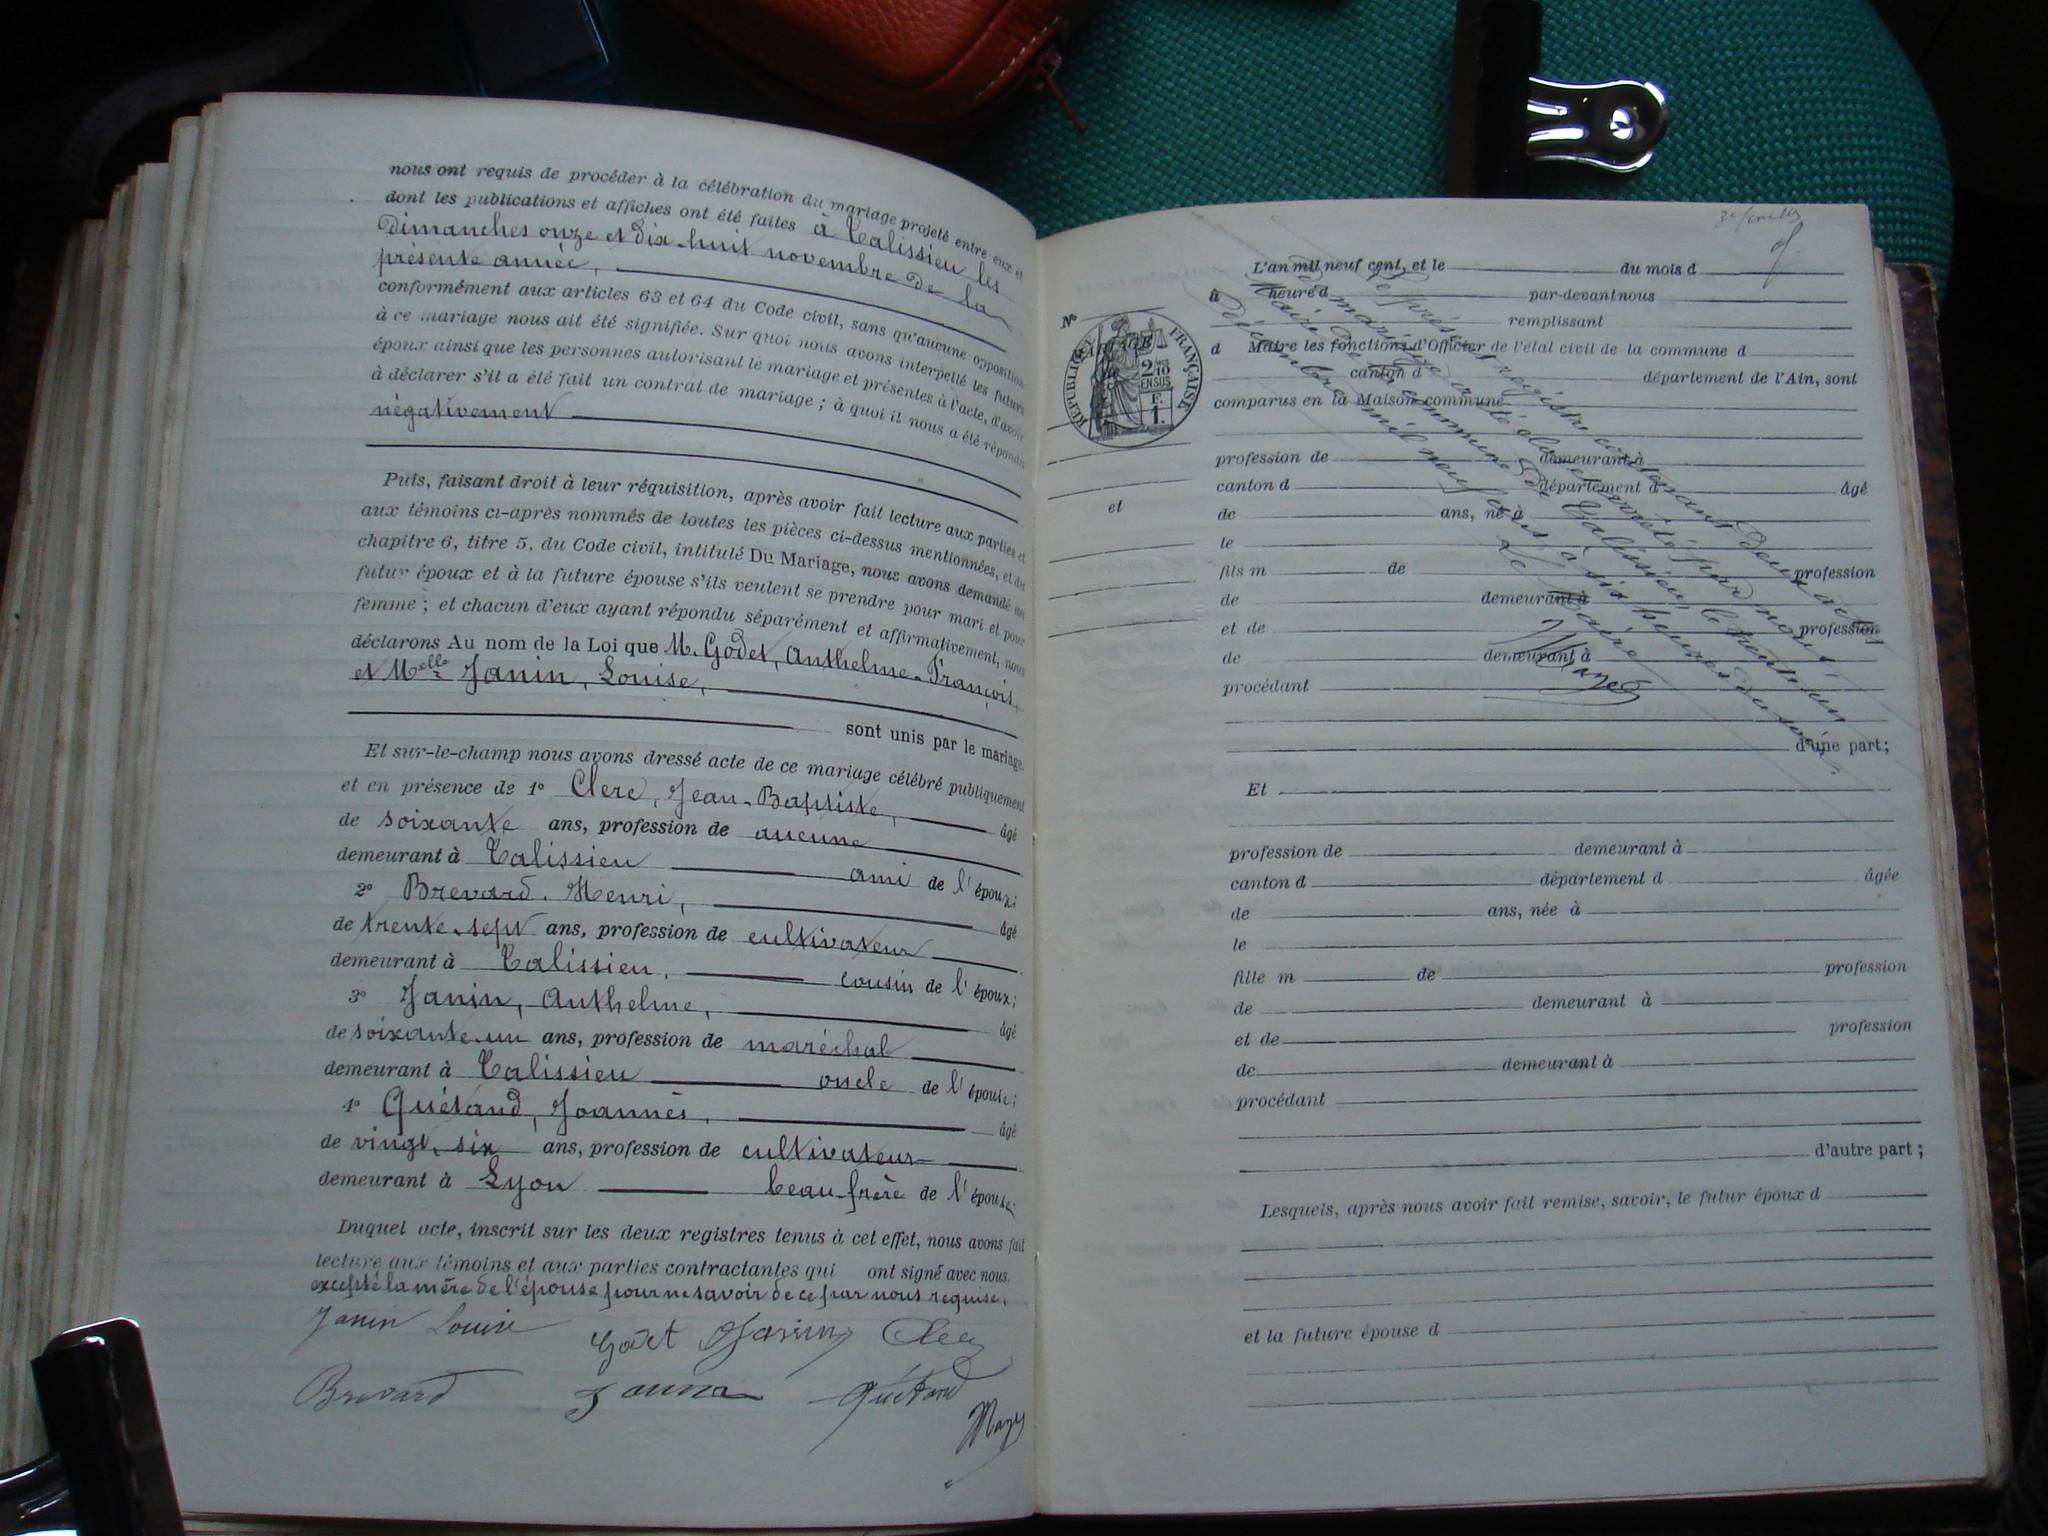 nous ont requis de procéder à la célébration du mariage projeté entre eux et
dont les publications et affiches ont été faites à Talissieu les
Dimanches onze et dix-huit novembre de la
présente année,
conformément aux articles 63 et 64 du Code civil, sans qu'aucune opposition
à ce mariage nous ait été signifiée. Sur quoi nous avons interpellé les futurs
époux ainsi que les personnes autorisant le mariage et présentes à l'acte, d'avoir
à déclarer s'il a été fait un contrat de mariage ; à quoi il nous a été répondu
négativement
Puis, faisant droit à leur réquisition, après avoir fait lecture aux parties et
aux témoins ci-après nommés de toutes les pièces ci-dessus mentionnées, et du
chapitre 6, titre 5, du Code civil, intitulé Du Mariage, nous avons demandé au
futur époux et à la future épouse s'ils veulent se prendre pour mari et pour
femme ; et chacun d'eux ayant répondu séparément et affirmativement, nous
déclarons Au nom de la Loi que M. Godet, Anthelme-François,
et Melle Janin, Louise,
sont unis par le mariage.
Et sur-le-champ nous avons dressé acte de ce mariage célébré publiquement
et en présence de 1° Clerc, Jean-Baptiste, âgé
de soixante ans, profession de aucune
demeurant à Talissieu ami de l'époux;
2° Brevard. Henri, âgé
de trente-sept ans, profession de cultivateur
demeurant à Talissieu, cousin de l'époux;
3° Janin, Anthelme, âgé
de soixante-un ans, profession de maréchal
demeurant à Talissieu oncle de l'épouse;
4° Quétand, Joannès, âgé
de vingt-six ans, profession de cultivateur
demeurant à Lyon beau-frère de l'épouse;
Duquel acte, inscrit sur les deux registres tenus à cet effet, nous avons fait
lecture aux témoins et aux parties contractantes qui ont signé avec nous.
excepté la mère de l'épouse pour ne savoir de ce par nous requise.
Janin Louise Godet Janin Clerc
Brevard Janin Quétand
Mazuy
3e feuillet
L'an mil neuf cent, et le du mois d
à heure d par-devant nous
N°
remplissant
d Maire les fonctions d'Officier de l'état civil de la commune d
canton d département de l'Ain, sont
comparus en la Maison commune
RÉPUBLIQUE FRANÇAISE
2/10 EN SUS
F. 1.
profession de demeurant à
canton d département d âgé
et
de ans, né à
le
fils m de profession
de demeurant à
et de profession
de demeurant à
procédant
d'une part;
Le présent registre contenant deux actes
de mariage a été clos et arrêté par nous
Maire de la commune de Talissieu, le trente-un
décembre mil neuf cent à six heures du soir.
Le Maire
Mazuy
Et
profession de demeurant à
canton d département d âgée
de ans, née à
le
fille m de profession
de demeurant à
et de profession
de demeurant à
procédant
d'autre part ;
Lesqueis, après nous avoir fait remise, savoir, le futur époux d
et la future épouse d